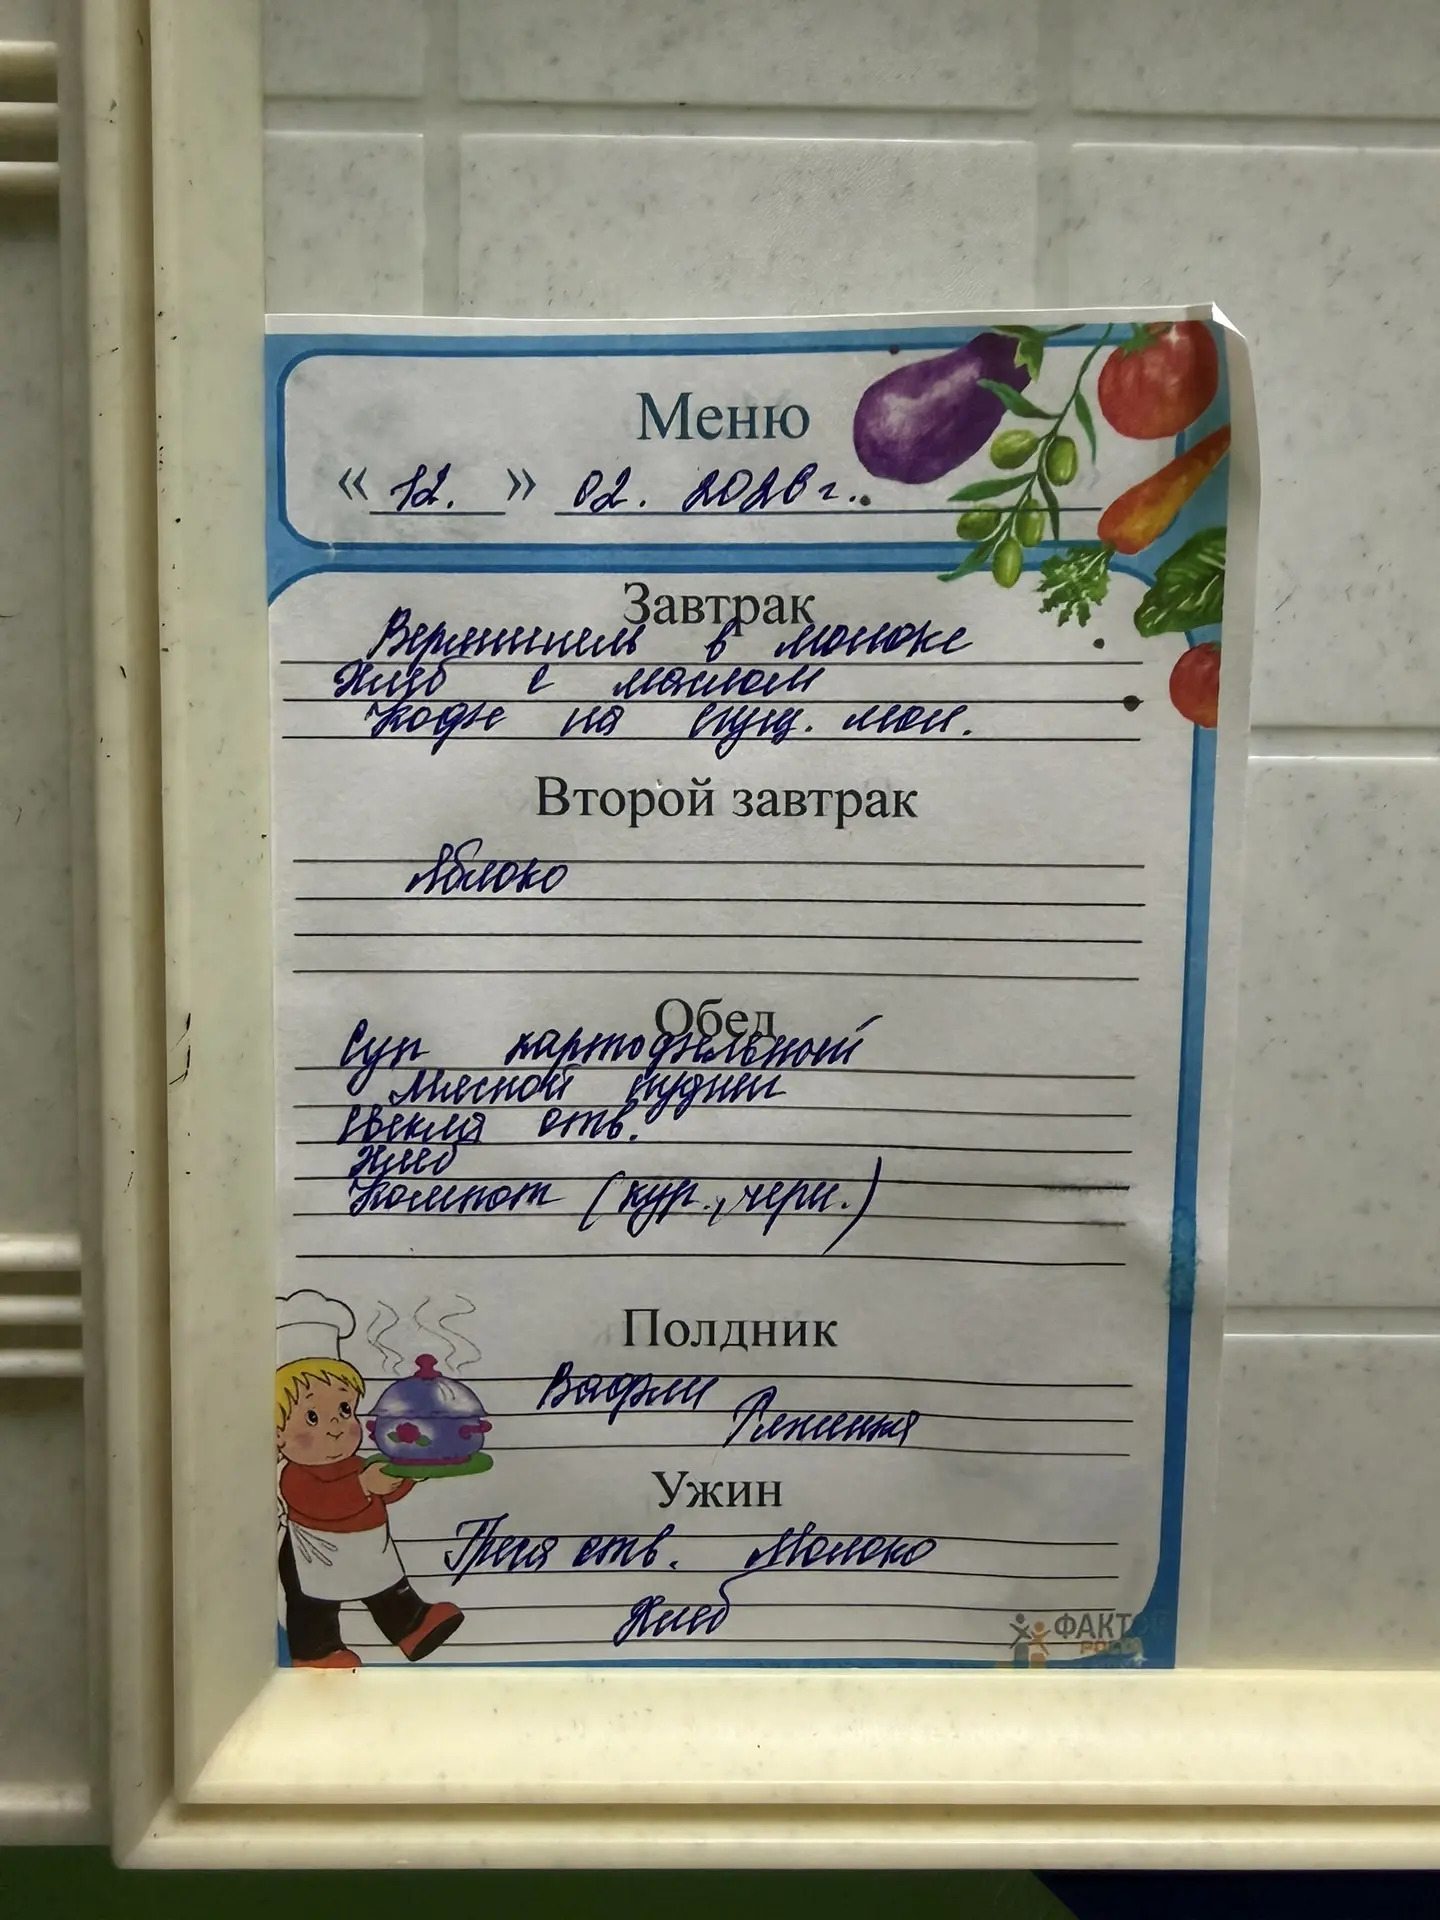 Меню
« 12. » 02. 2026 г.
Завтрак
Вермишель в молоке
Хлеб с маслом
Кофе на сгущ. мол.
Второй завтрак
Яблоко
Обед
Суп картофельный
Мясной пудинг
Свекла отв.
Хлеб
Компот (кур., черн.)
Полдник
Вафли
Ряженка
Ужин
Греча отв. Молоко
Хлеб
ФАКТО